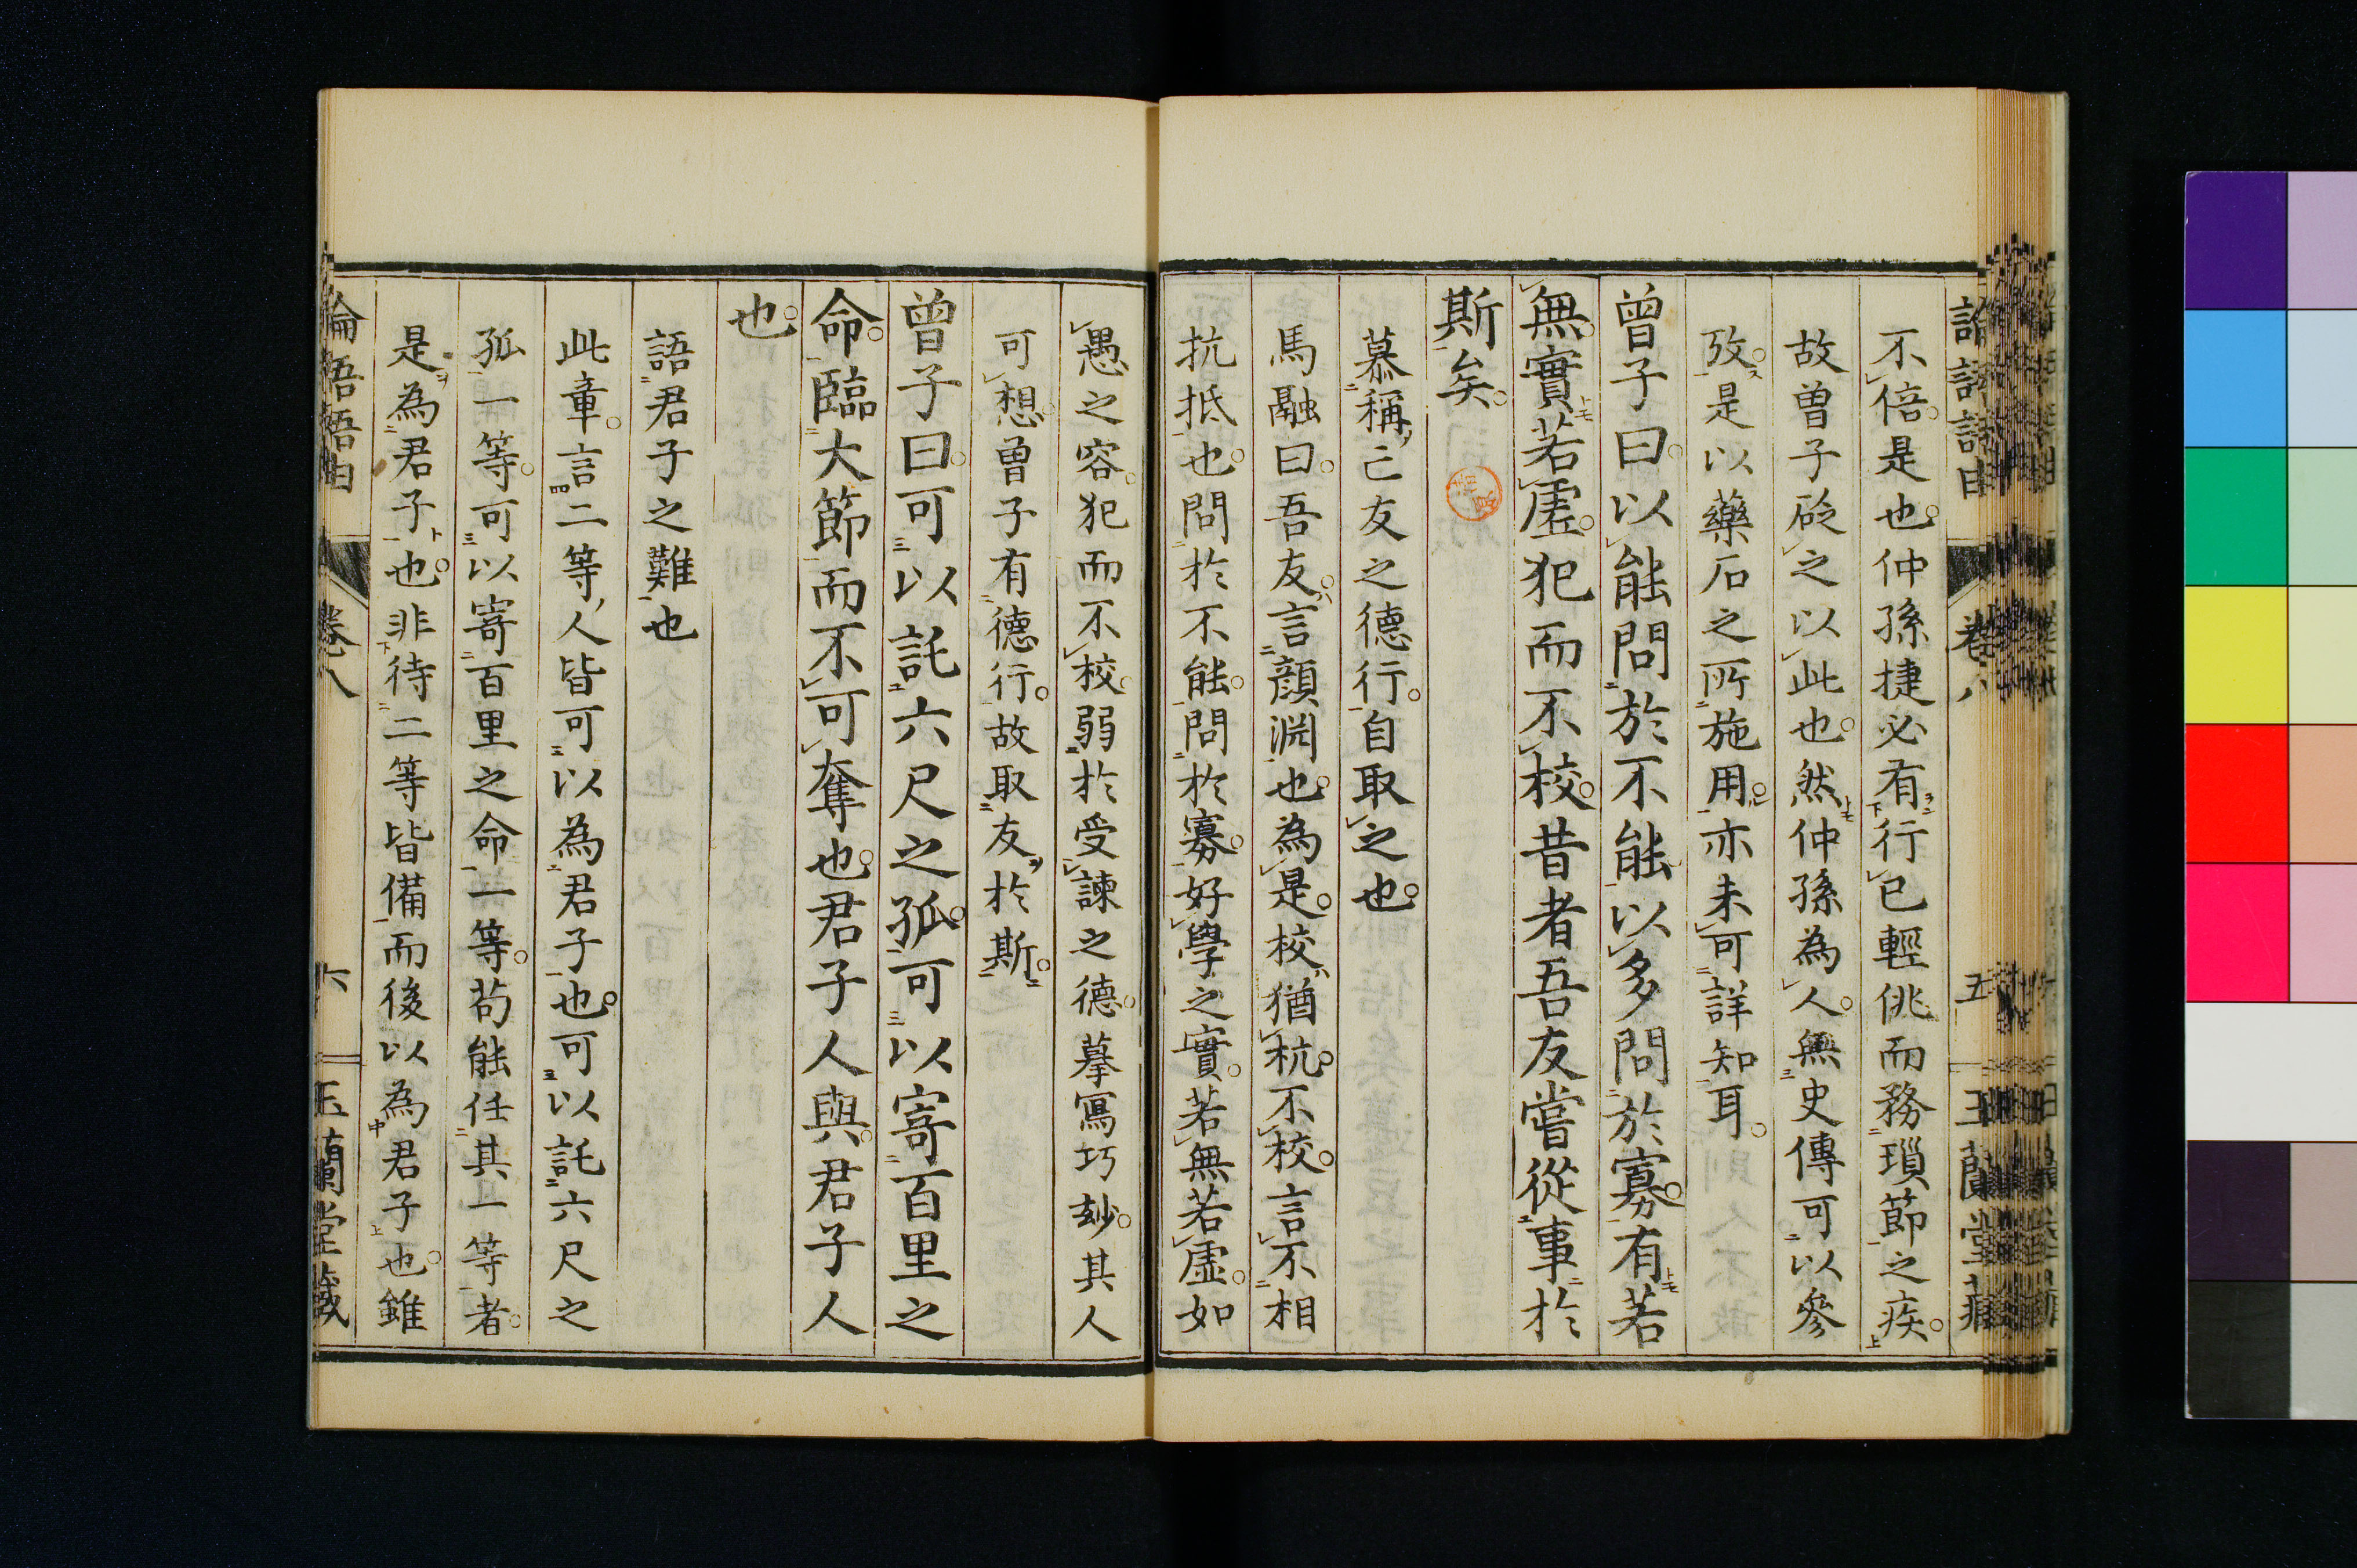 不倍是也仲孫捷必有行已輕佻而務瑣節之疾
故曾子砭之以此也然仲孫為人無史傳可以參
攷是以藥石之所施用亦未可詳知耳
曾子曰以能問於不能以多問於寡有若
無實若虛犯而不校昔者吾友嘗從事於
斯矣
慕稱亡友之德行自取之也
馬融曰吾友言顏淵也為是校猶杭不校言不相
抗抵也問於不能問於寡好學之實若無若虛如
愚之容犯而不校弱於受諫之德摹寫巧玅其人
可想曾子有德行故取友於斯
曾子曰可以託六尺之孤可以寄百里之
命臨大節而不可奪也君子人與君子人
也
語君子之難也
此章言二等人皆可以為君子也可以託六尺之
孤一等可以寄百里之命一等苟能任其一等者
是為君子也非待二等皆備而後以為君子也雖
論語語由 卷八 六 玉蘭堂藏